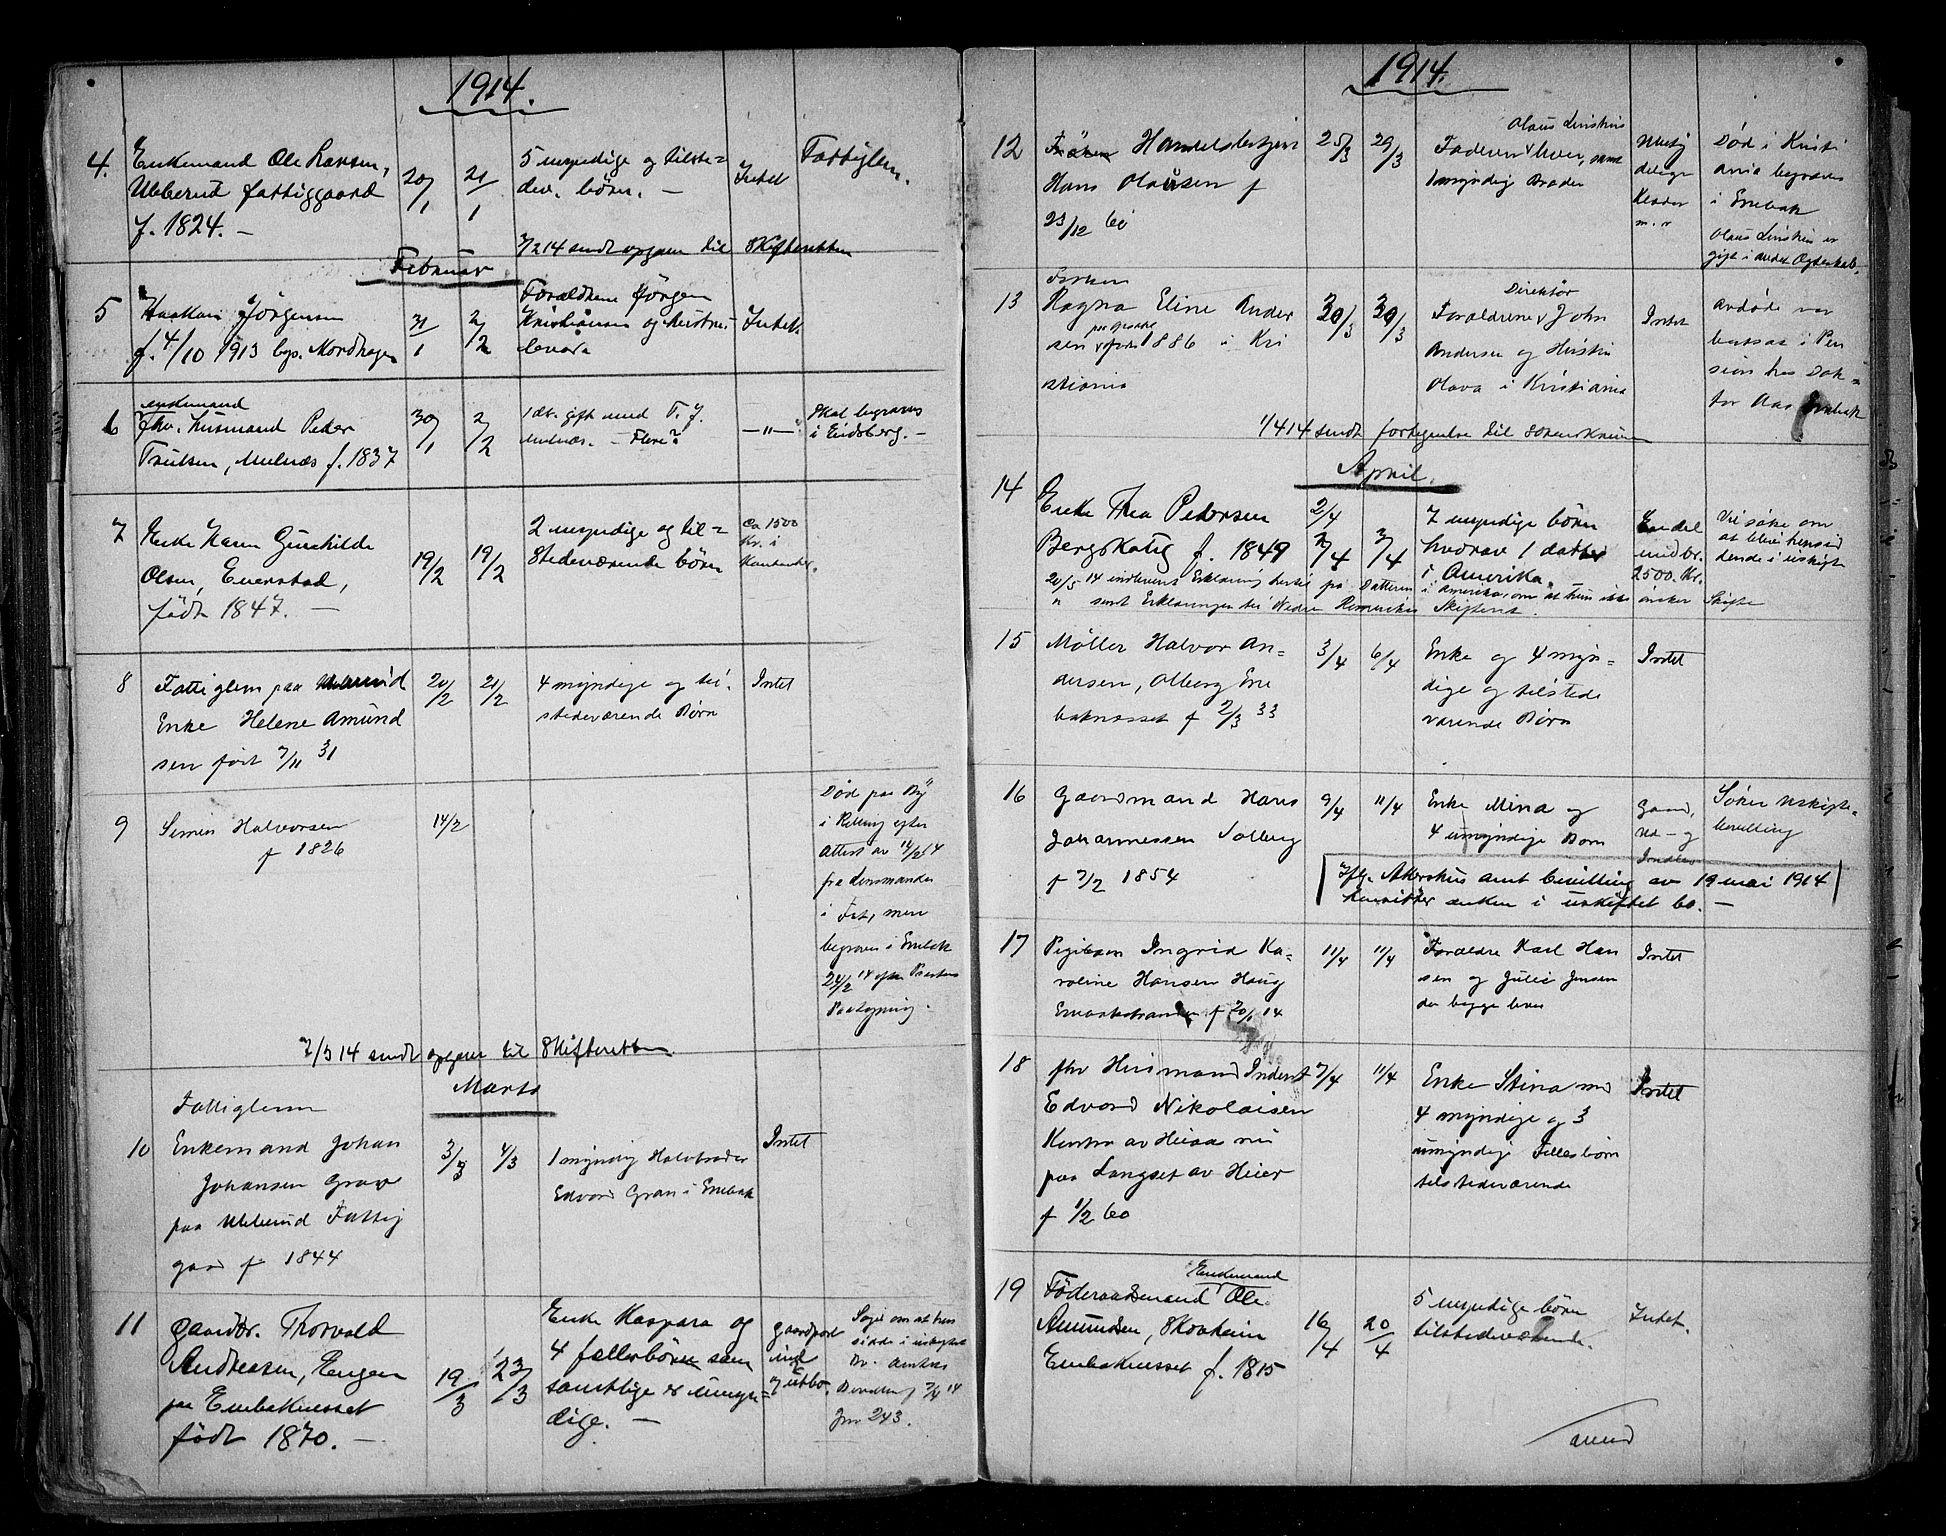 1914.
4. Enkemand Ole Larsen,
Ubberud fattiggaard
f. 1824. —
20/1
21/1
5 myndige og tilste=
dev. børn. —
Intet
Fattiglem.
7/2 14 sendt opgave til Skifteretten
Februar
5 Haakon Jörgensen
f. 4/10 1913 Nordhagen
31/1
2/2
Forældrene Jörgen
Kristiansen og
Intet
6 enkemand
fhv. husmand Peder
Trulsen, Mulnæs f. 1837
30/1
2/2
1 dt. gift med T. J.
Mulnæs. — Flere?
— " —
Skal begraves
i Eidsberg. —
7 Enke Karen Gunhilde
Olsen, Enerstad,
født 1847. —
19/2
19/2
2 myndige og til=
stedeværende børn
ca 1500
kr. i
8 Fattiglem paa Ubberud
Enke Helene Amund
sen født 7/11 31
20/2
21/2
4 myndige og til.
stedeværende Børn
Intet
9 Simen Halvorsen
f 1826
14/2
Død paa By
i Rælling efter
Attest av 14/2 14
fra Lensmanden
i Fet, men
begraven i Enebak
24/2 14 efter Prestens
Paategning.
7/3 14 sendt opgave til Skifteretten.
Marts
10 Fattiglem
Enkemand Johan
Johansen Grav
paa Ubberud Fattig
gaard f 1844
3/3
4/3
1 myndig Halvbroder
Edvard Grav i Enebak
Intet
11 Gaardbr. Thorvald
Andreasen, Engen
paa Enebaknesset
født 1870. —
19/3
23/3
Enke Kaspara og
4 fællesbörn som
samtlige er umyn=
dige. —
gaardpart
ind
og utbo.
Søger om at hun
sidde i uskiftet
Bo. Amtets
Bevilling 7/4 14
Jnr 243.
1914.
12 Handelsbetjent
Hans Olausen f
23/12 60
25/3
29/3
Olaus Linskins
Faderen lever, samt
1 myndig Broder
Ubety
delige
Klæder
m. v
Død i Kristi
ania begraves
i Enebak
Olaus Linskins er
gift i andet Ægteskab.
13 Frøken
Ragna Eline Ander
sen født 1886 i Kri
stiania
30/3
30/3
Direktør
Forældrene John
Andersen og Kirstin
Olava i Kristiania
Intet
Avdøde var
bortsat i Pen
sion hos Dok=
tor Aas Enebak
1/4 14 sendt fortegnelse til sorenskriv
April.
14 Enke Thea Pedersen
Bergskaug f. 1849
2/4
2/4
3/4
7 myndige børn
hvorav 1 datter
i Amerika.
Endel
indbo
2500. Kr.
Vi søke om
at bliver hensid
dende i uskiftet
20/5 14 indlevert Erklæring hertil fra Datteren i Amerika, om at hun ikke ønsker Skifte
" sendt Erklæringen til Nedre Romerikes Skifteret.
15 Møller Halvor An=
dersen, Olberg Ene
baknesset f 2/3 33
3/4
6/4
Enke og 4 myn=
dige og tilstede
værende Børn
Intet
16 Gaardmand Hans
Johannessen Solberg
f 7/2 1854
9/4
11/4
Enke Mina og
4 umyndige Børn
Gaard,
Ud— og
Indbo
Søker uskifte=
bevilling
Iflg. Akershus amts bevilling av 19 mai 1914
hensitter enken i uskiftet bo. —
17 Pigebarn Ingrid Ka=
roline Hansen Haug
Enebakstranden f 20/1 14
11/4
11/4
Forældre Karl Han
sen og Julie Jensen
der begge lever
Intet
18 fhv Husmand Inderst
Edvard Nikolaisen
av nu
paa Langset av Heier
f 1/2 60
7/4
11/4
Enke Stina med
4 myndige og 3
umyndige Fellesbørn
tilstedeværende
Intet
19 Enkemand
Föderaadsmand Ole
Amundsen, Skovheim
Enebaknesset f. 1815
16/4
20/4
5 myndige börn
tilstedeværende.
Intet.